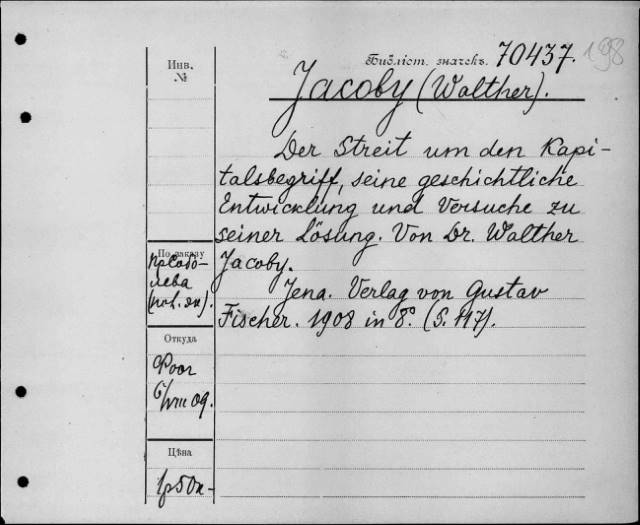 Инв.
№
Библіот. значекъ. 70437. 198
Jacoby (Walther).
Der Streit um den Kapi-
talsbegriff, seine geschichtliche
Entwicklung und Versuche zu
seiner Lösung. Von Dr. Walther
Jacoby.
Jena. Verlag von Gustav
Fischer. 1908 in 8°. (S. 117).
По заказу
лева
Откуда
6/VIII 09.
Цѣна
1р50к-